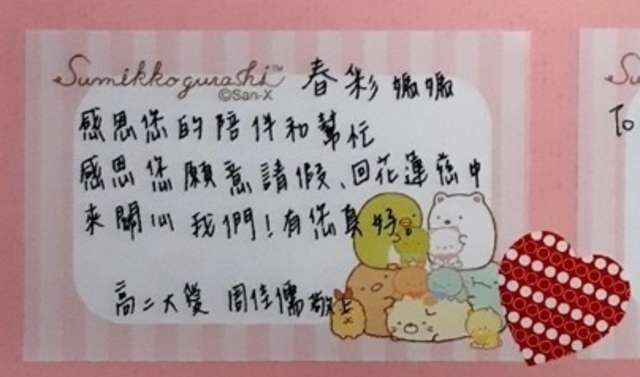 Sumikkogurashi™
©San-X
春彩媽媽
感恩您的陪伴和幫忙
感恩您願意請假、回花蓮慈中
來關心我們!有您真好。
高二大愛 周佳儒敬上
Su
To